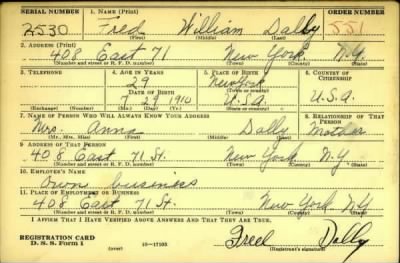 SERIAL NUMBER 1. NAME (Print) ORDER NUMBER
2530 Fred William Dally 551
(First) (Middle) (Last)
2. ADDRESS (Print)
408 East 71 New York N.Y.
(Number and street or R. F. D. number) (Town) (County) (State)
3. TELEPHONE 4. AGE IN YEARS 5. PLACE OF BIRTH 6. COUNTRY OF CITIZENSHIP
29 New York
DATE OF BIRTH (Town or county)
7 29 1910 U.S.A. U.S.A.
(Exchange) (Number) (Mo.) (Day) (Yr.) (State or country)
7. NAME OF PERSON WHO WILL ALWAYS KNOW YOUR ADDRESS 8. RELATIONSHIP OF THAT PERSON
Mrs. Anna Dally Mother
(Mr., Mrs., Miss) (First) (Middle) (Last)
9. ADDRESS OF THAT PERSON
408 East 71 St. New York N.Y.
(Number and street or R. F. D. number) (Town) (County) (State)
10. EMPLOYER'S NAME
Own business
11. PLACE OF EMPLOYMENT OR BUSINESS
408 East 71 St. New York N.Y.
(Number and street or R. F. D. number) (Town) (County) (State)
I AFFIRM THAT I HAVE VERIFIED ABOVE ANSWERS AND THAT THEY ARE TRUE.
REGISTRATION CARD
D. S. S. Form 1 (over) 16—17105 Fred Dally
(Registrant's signature)